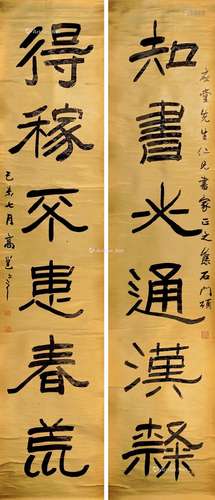 知書必通漢隸
應堂先生仁兄書家正之焦石門碩
得稼不患春荒
己未七月高邕